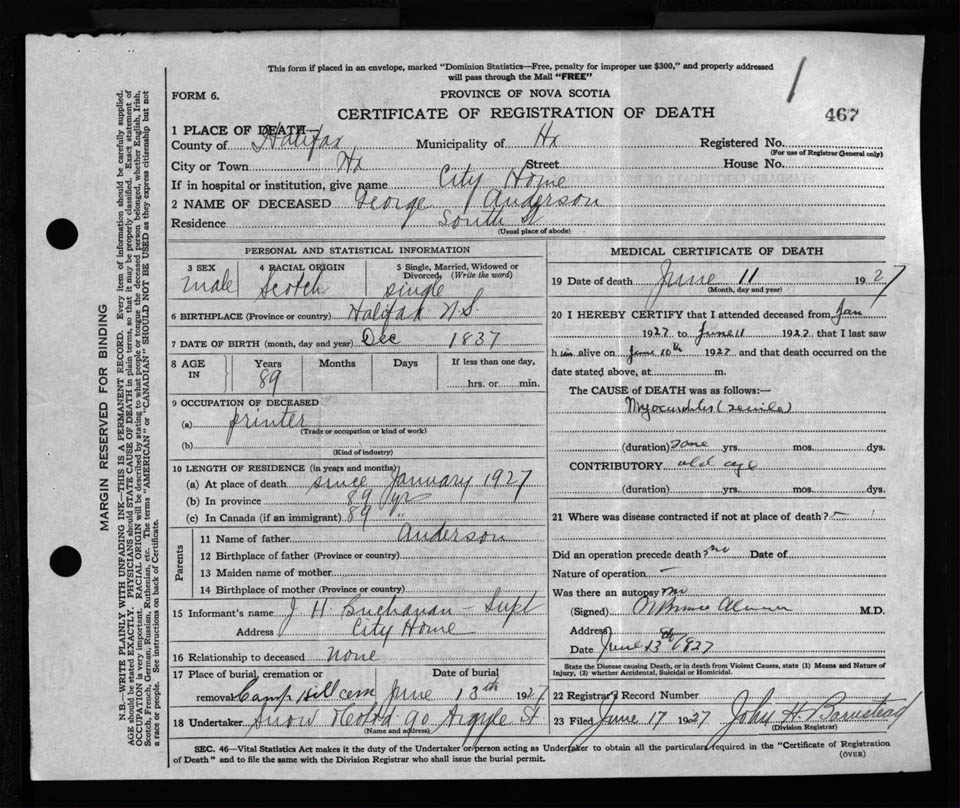 This form if placed in an envelope, marked "Dominion Statistics—Free, penalty for improper use $300," and properly addressed
will pass through the Mail "FREE"
FORM 6.
PROVINCE OF NOVA SCOTIA
467
CERTIFICATE OF REGISTRATION OF DEATH
1 PLACE OF DEATH—
County of Halifax Municipality of Hx Registered No.
(For use of Registrar General only)
City or Town Hx Street House No.
If in hospital or institution, give name City Home
2 NAME OF DECEASED George Anderson
Residence South St
(Usual place of abode)
PERSONAL AND STATISTICAL INFORMATION
3 SEX 4 RACIAL ORIGIN 5 Single, Married, Widowed or
Divorced (Write the word)
male Scotch single
6 BIRTHPLACE (Province or country) Halifax N.S.
7 DATE OF BIRTH (month, day and year) Dec 1837
8 AGE IN Years Months Days If less than one day,
89 hrs. or min.
9 OCCUPATION OF DECEASED
(a) printer
(Trade or occupation or kind of work)
(b)
(Kind of industry)
10 LENGTH OF RESIDENCE (in years and months)
(a) At place of death since January 1927
(b) In province 89 yrs
(c) In Canada (if an immigrant) 89 "
Parents
11 Name of father Anderson
12 Birthplace of father (Province or country)
13 Maiden name of mother
14 Birthplace of mother (Province or country)
15 Informant's name J H Buchanan - Supt
Address City Home
16 Relationship to deceased none
17 Place of burial, cremation or Date of burial
removal Camp Hill cem June 13th 1927
18 Undertaker Snow 90 Argyle St
(Name and address)
MEDICAL CERTIFICATE OF DEATH
19 Date of death June 11 1927
(Month, day and year)
20 I HEREBY CERTIFY that I attended deceased from Jan
1927 to June 11 1927 that I last saw
him alive on June 10th 1927 and that death occurred on the
date stated above, at m.
The CAUSE of DEATH was as follows:—
Myocarditis (senile)
(duration) yrs. mos. dys.
CONTRIBUTORY old age
(duration) yrs. mos. dys.
21 Where was disease contracted if not at place of death? —
Did an operation precede death? no Date of
Nature of operation —
Was there an autopsy no
(Signed) M.D.
Address
Date June 13th 1927
State the Disease causing Death, or in death from Violent Causes, state (1) Means and Nature of
Injury, (2) whether Accidental, Suicidal or Homicidal.
22 Registrar's Record Number
23 Filed June 17 1927 John H Barnstead
(Division Registrar)
SEC. 46—Vital Statistics Act makes it the duty of the Undertaker or person acting as Undertaker to obtain all the particulars required in the "Certificate of Registration
of Death" and to file the same with the Division Registrar who shall issue the burial permit.
(OVER)
MARGIN RESERVED FOR BINDING
N.B.—WRITE PLAINLY WITH UNFADING INK—THIS IS A PERMANENT RECORD. Every item of information should be carefully supplied.
AGE should be stated EXACTLY. PHYSICIANS should STATE CAUSE OF DEATH in plain terms, so that it may be properly classified. Exact statement of
OCCUPATION is very important. RACIAL ORIGIN will be described by stating to what people or tongue the deceased person belonged, whether English, Irish,
Scotch, French, German, Russian, Ruthenian, etc. The terms "AMERICAN" or "CANADIAN" SHOULD NOT BE USED as they express citizenship but not
a race or people. See instructions on back of Certificate.